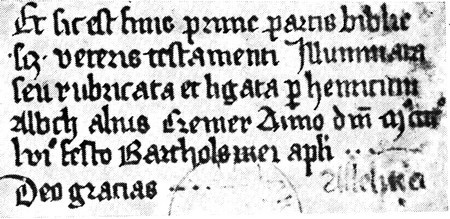 Et sic est finis prime partis biblie
scz. veteris testamenti Illuminata
seu rubricata et ligata p henricum
Albch alius Cremer Anno dm̄ mͦ ccccͦ
lvi festo Bartholomei apli . . .
Deo gracias . . .